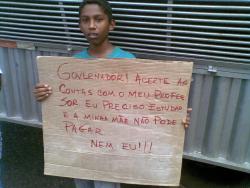 GOVERNADOR! ACERTE AS
CONTAS COM O MEU PROFES
SOR. EU PRECISO ESTUDAR
E A MINHA MÃE NÃO PODE
PAGAR
NEM EU!!!